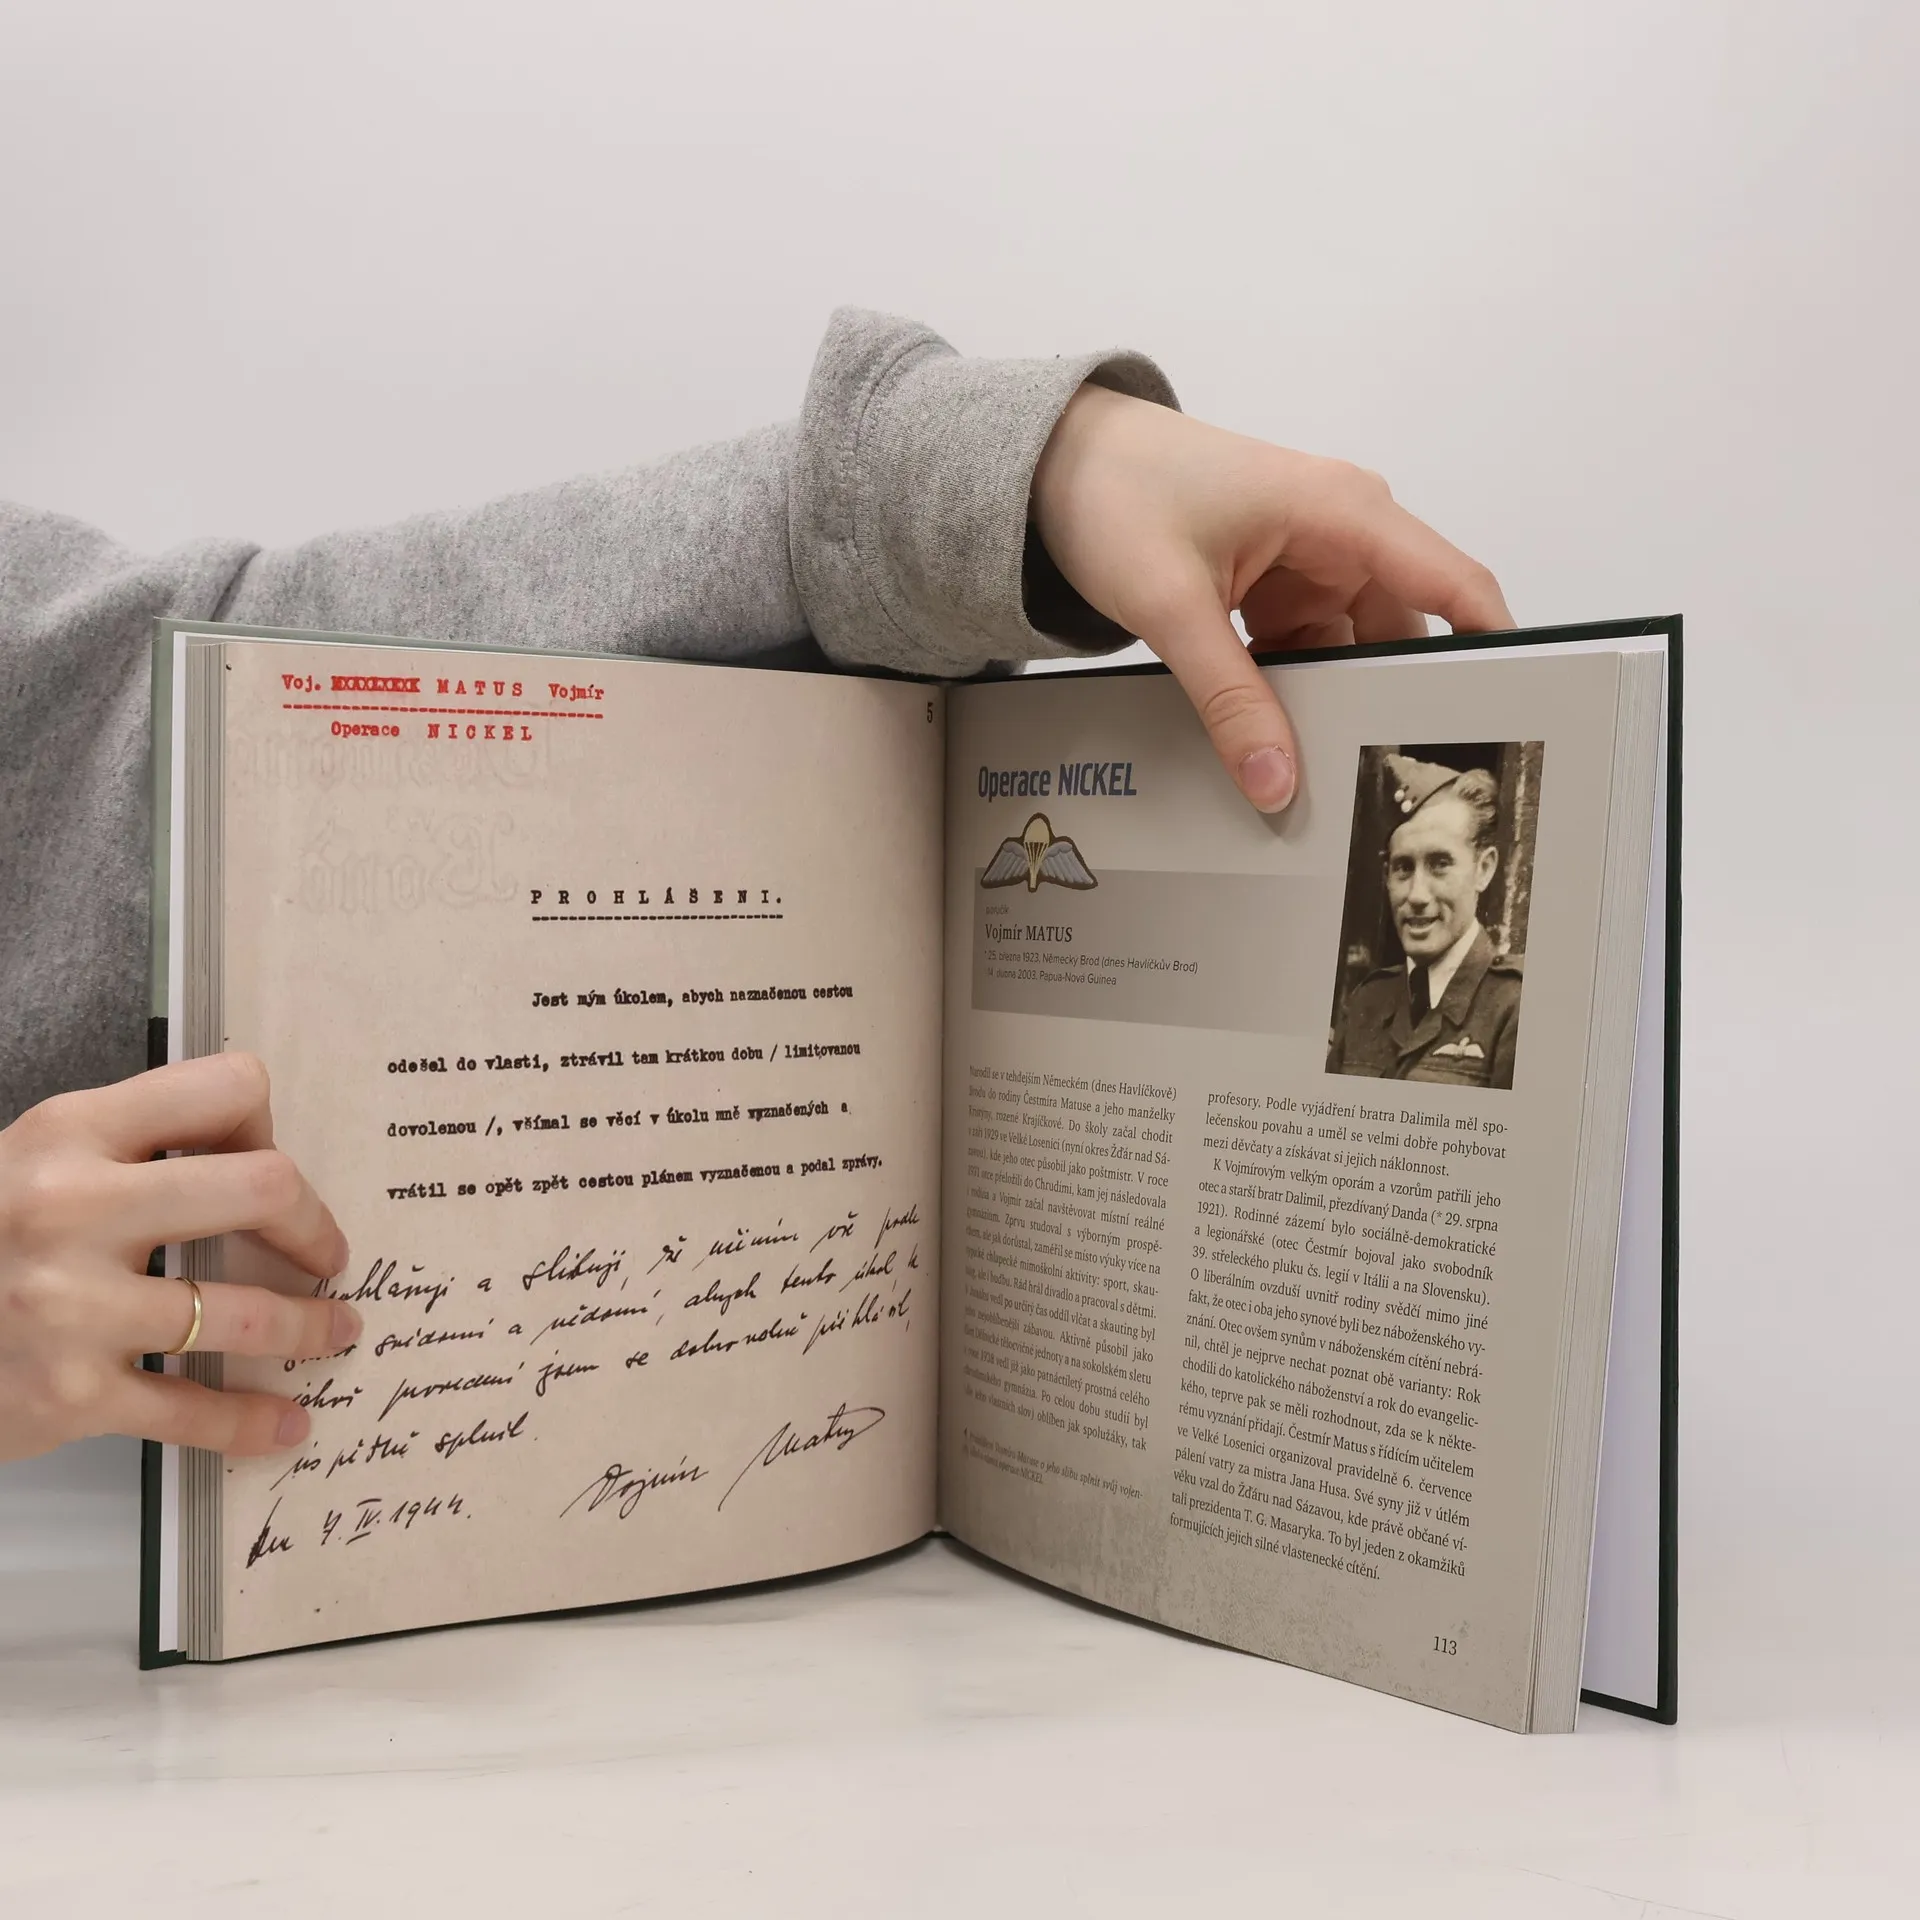 Voj. MATUS Vojmír
Operace NICKEL
5
PROHLÁŠENI.
Jest mým úkolem, abych naznačenou cestou
odešel do vlasti, ztrávil tam krátkou dobu / limitovanou
dovolenou /, všímal se věcí v úkolu mně vyznačených a
vrátil se opět zpět cestou plánem vyznačenou a podal zprávy.
a slibuji, že učiním vše podle
svědomí a vědomí, abych tento úkol, k
jehož provedení jsem se dobrovolně přihlásil,
splnil.
7. IV. 1944.
Vojmír Matus
Operace NICKEL
Vojmír MATUS
* 25. března 1923, Německý Brod (dnes Havlíčkův Brod)
14. dubna 2003, Papua-Nova Guinea
Narodil se v tehdejším Německém (dnes Havlíčkově)
Brodu do rodiny Čestmíra Matuse a jeho manželky
Kristýny, rozené Krajíčkové. Do školy začal chodit
v září 1929 ve Velké Losenici (nyní okres Žďár nad Sá-
zavou), kde jeho otec působil jako poštmistr. V roce
1931 otce přeložili do Chrudimi, kam jej následovala
i rodina a Vojmír začal navštěvovat místní reálné
gymnázium. Zprvu studoval s výborným prospě-
chem, ale jak dorůstal, zaměřil se místo výuky více na
typické chlapecké mimoškolní aktivity: sport, skau-
ting, ale i hudbu. Rád hrál divadlo a pracoval s dětmi.
V Junáku vedl po určitý čas oddíl vlčat a skauting byl
jeho nejoblíbenější zábavou. Aktivně působil jako
člen Dělnické tělocvičné jednoty a na sokolském sletu
v roce 1938 vedl již jako patnáctiletý prostná celého
chrudimského gymnázia. Po celou dobu studií byl
dle jeho vlastních slov oblíben jak spolužáky, tak
Prohlášení Vojmíra Matuse a jeho slibu splnit svůj vojen-
operace NICKEL
profesory. Podle vyjádření bratra Dalimila měl spo-
lečenskou povahu a uměl se velmi dobře pohybovat
mezi děvčaty a získávat si jejich náklonnost.
K Vojmírovým velkým oporám a vzorům patřili jeho
otec a starší bratr Dalimil, přezdívaný Danda (* 29. srpna
1921). Rodinné zázemí bylo sociálně-demokratické
a legionářské (otec Čestmír bojoval jako svobodník
39. střeleckého pluku čs. legií v Itálii a na Slovensku).
O liberálním ovzduší uvnitř rodiny svědčí mimo jiné
fakt, že otec i oba jeho synové byli bez náboženského vy-
znání. Otec ovšem synům v náboženském cítění nebrá-
nil, chtěl je nejprve nechat poznat obě varianty: Rok
chodili do katolického náboženství a rok do evangelic-
kého, teprve pak se měli rozhodnout, zda se k někte-
rému vyznání přidají. Čestmír Matus s řídícím učitelem
ve Velké Losenici organizoval pravidelně 6. července
pálení vatry za mistra Jana Husa. Své syny již v útlém
věku vzal do Žďáru nad Sázavou, kde právě občané ví-
tali prezidenta T. G. Masaryka. To byl jeden z okamžiků
formujících jejich silné vlastenecké cítění.
113